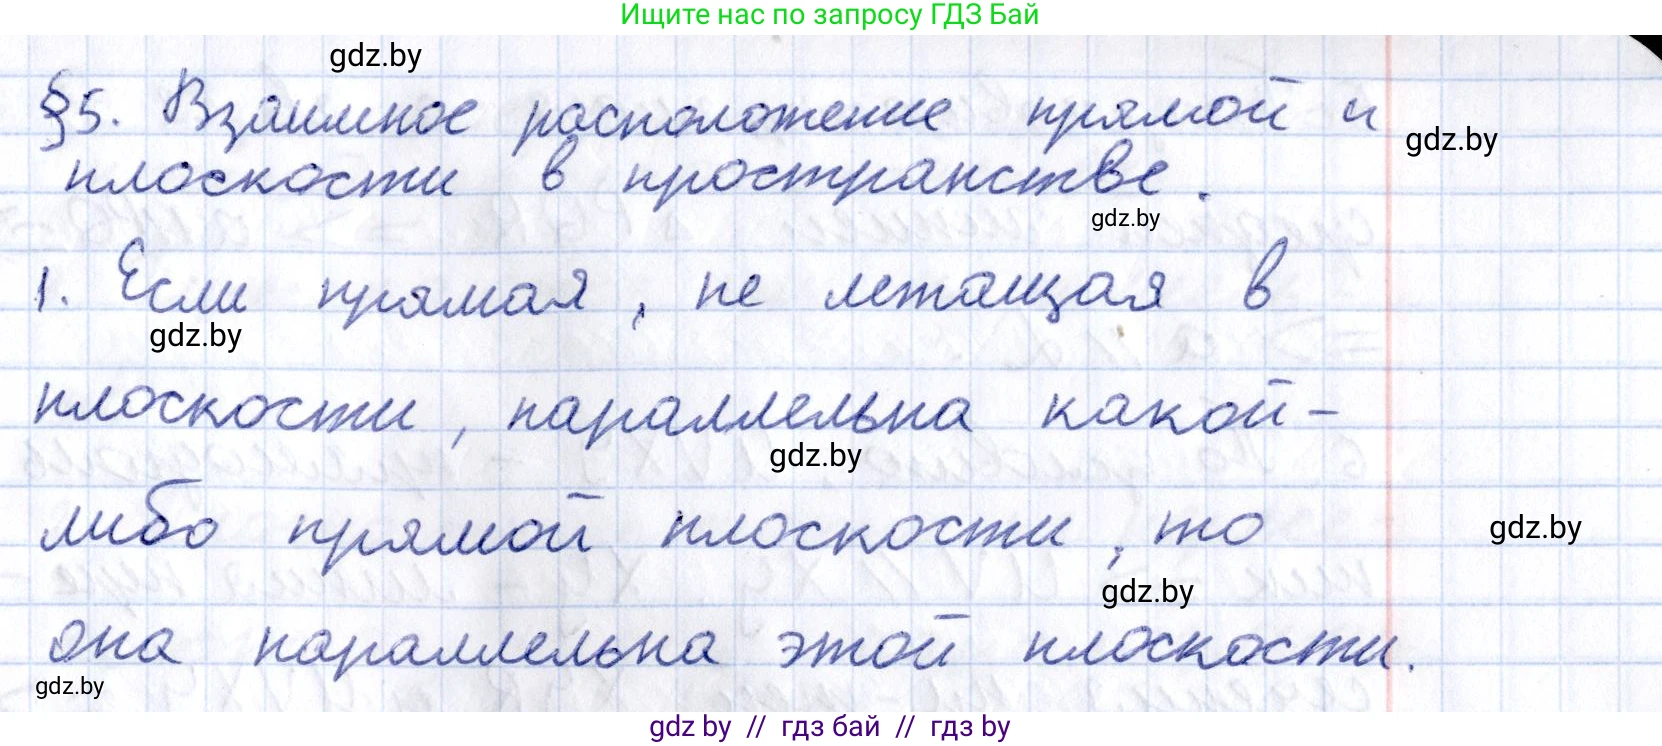 Ищите нас по запросу ГДЗ Бай
gdz.by
§5. Взаимное расположение прямой и
gdz.by
плоскости в пространстве.
gdz.by
1. Если прямая, не лежащая в
gdz.by
плоскости, параллельна какой-
gdz.by
либо прямой плоскости, то
gdz.by
gdz.by
она параллельна этой плоскости.
gdz.by
gdz by // гдз бай // гдз by